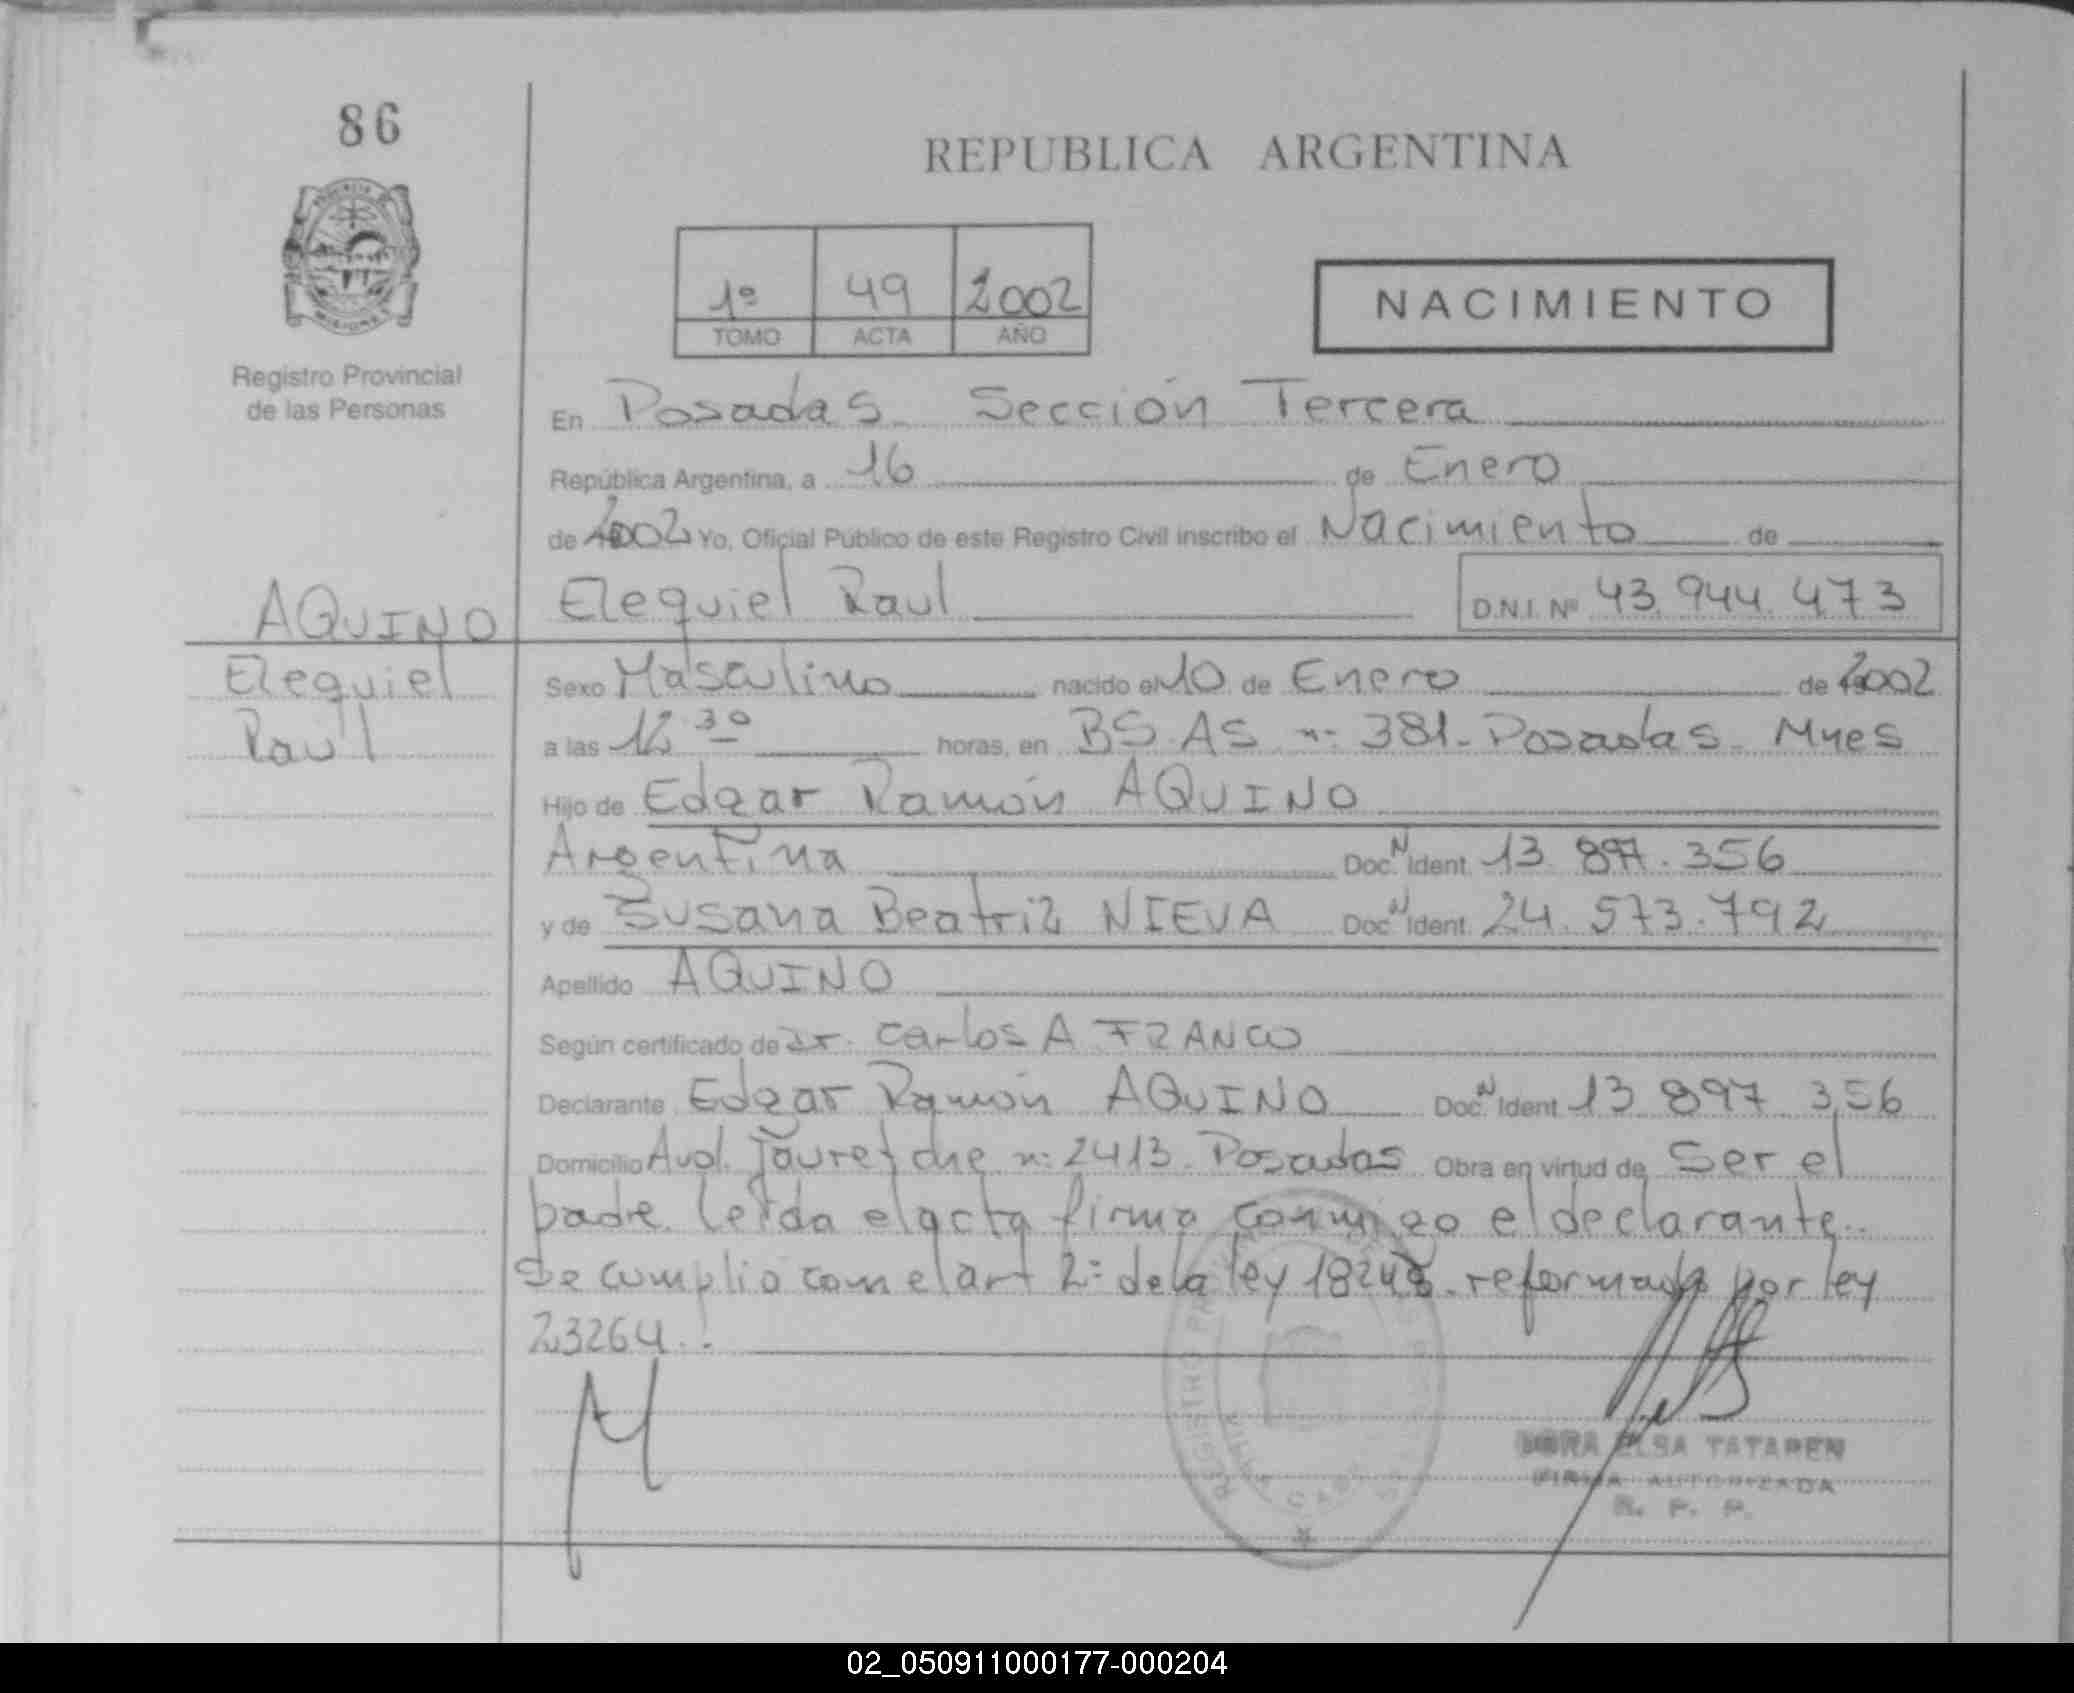 86
REPUBLICA ARGENTINA
1º 49 2002
TOMO ACTA AÑO
NACIMIENTO
Registro Provincial
de las Personas
En Posadas Sección Tercera
República Argentina, a 16 de Enero
de 2002 Yo, Oficial Público de este Registro Civil inscribo el Nacimiento de
AQUINO Ezequiel Raul D.N.I. Nº 43.944.473
Ezequiel
Raul
Sexo Masculino nacido el 10 de Enero de 2002
a las 12 30 horas, en BS. AS nº 381 - Posadas - Mnes
Hijo de Edgar Ramón AQUINO
Argentina Doc. N Ident. 13.897.356
y de Susana Beatriz NIEVA Doc. N Ident. 24.573.792
Apellido AQUINO
Según certificado de Dr. Carlos A FRANCO
Declarante Edgar Ramón AQUINO Doc. N Ident 13 897 356
Domicilio Avd. Jauretche nº 2413 Posadas Obra en virtud de Ser el
padre. Leída el acta firma conmigo el declarante.
Se cumplio com el art 2º de la ley 18248 reformada por ley
23264.
REGISTRO
ELSA TATAREN
FIRMA AUTORIZADA
R. P. P.
02_050911000177-000204